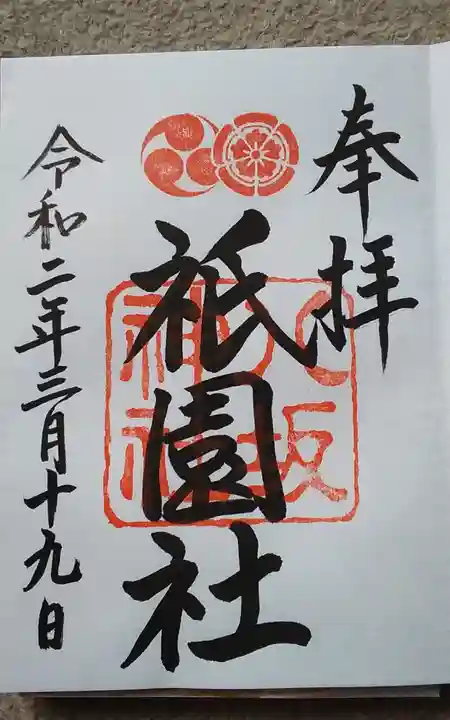 奉拝
八坂
神社
祇園社
令和二年三月十九日